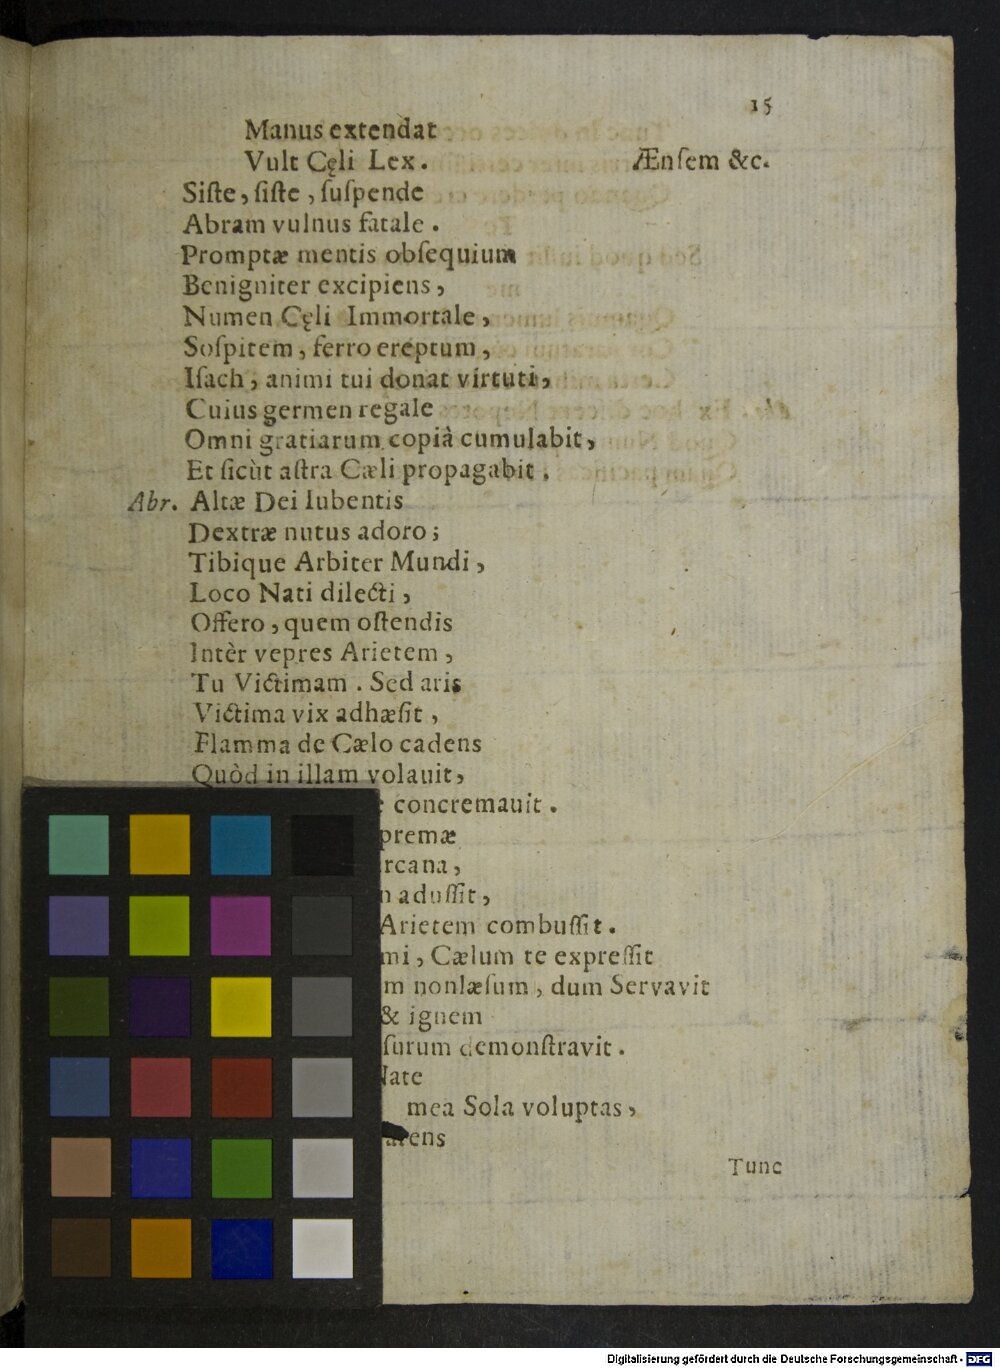 15
Manus extendat
Vult Cęli Lex. Ænſem &c.
Siſte, ſiſte, ſuſpende
Abram vulnus fatale.
Promptæ mentis obſequium
Benigniter excipiens,
Numen Cęli Immortale,
Soſpitem, ferro ereptum,
Iſach, animi tui donat virtuti,
Cuius germen regale
Omni gratiarum copià cumulabit,
Et ſicùt aſtra Cæli propagabit.
Abr. Altæ Dei Iubentis
Dextræ nutus adoro;
Tibique Arbiter Mundi,
Loco Nati dilecti,
Offero, quem oſtendis
Intèr vepres Arietem,
Tu Victimam. Sed aris
Victima vix adhæſit,
Flamma de Cælo cadens
Quòd in illam volauit,
concremauit.
premæ
rcana,
aduſſit,
Arietem combuſſit.
mi, Cælum te expreſſit
m nonlæſum, dum Servavit
& ignem
ſurum demonſtravit.
Nate
mea Sola voluptas,
arens
Tunc
Digitalisierung gefördert durch die Deutsche Forschungsgemeinschaft - DFG